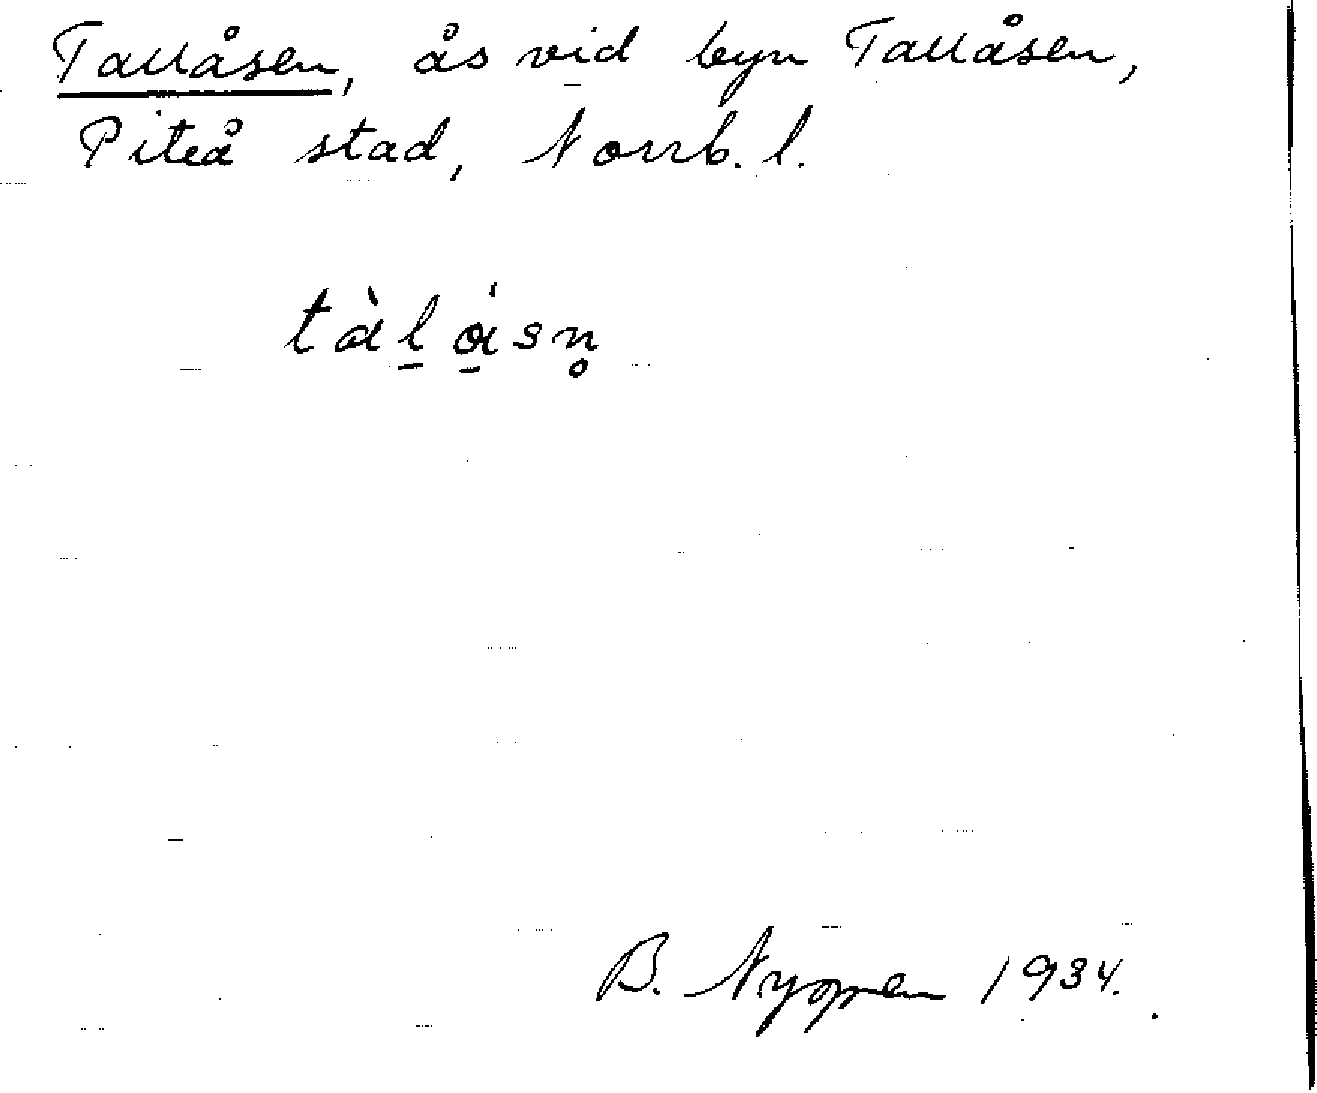 Tallåsen, ås vid byn Tallåsen,
Piteå stad, Norrb. l.
tàl̲ά̲sn̥
B. Nyppen 1934.